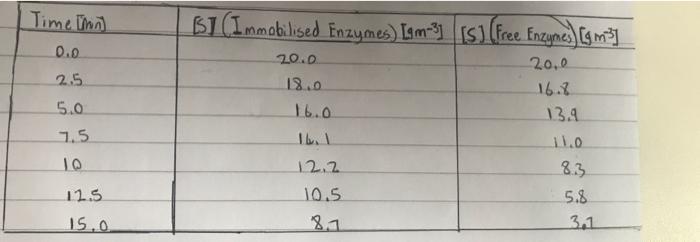 Time [min] [S] (Immobilised Enzymes) [gm-³] [S] (Free Enzymes) [gm-³]
0.0 20.0 20.0
2.5 18.0 16.8
5.0 16.0 13.9
7.5 16.1 11.0
10 12.2 8.3
12.5 10.5 5.8
15.0 8.7 3.7